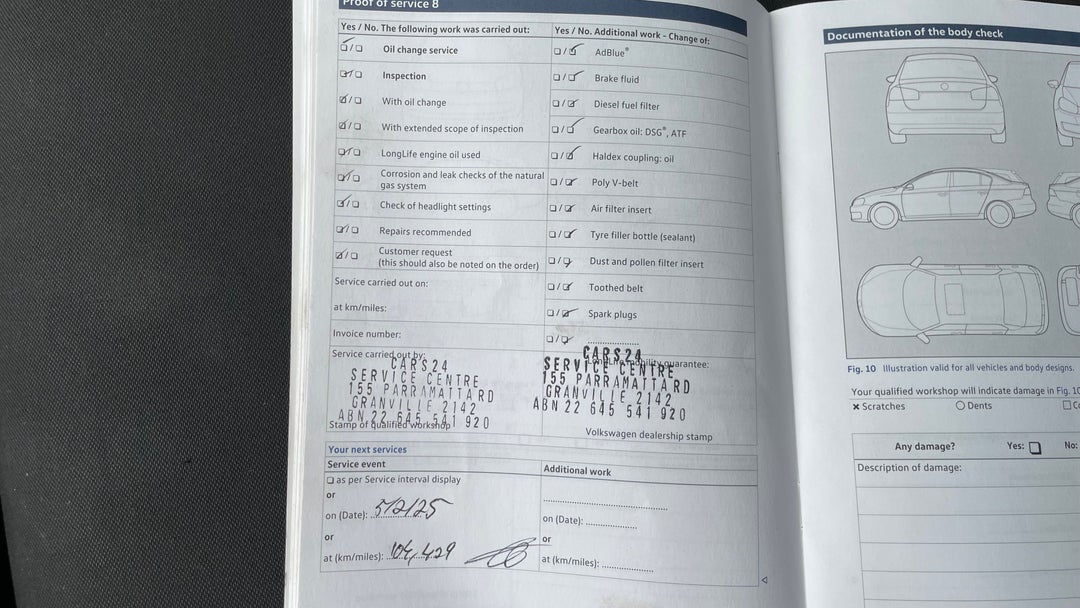 Proof of service 8
Yes / No. The following work was carried out:
Oil change service
Inspection
With oil change
With extended scope of inspection
LongLife engine oil used
Corrosion and leak checks of the natural
gas system
Check of headlight settings
Repairs recommended
Customer request
(this should also be noted on the order)
Service carried out on:
at km/miles:
Invoice number:
Service carried out by:
CARS24
SERVICE CENTRE
155 PARRAMATTA RD
GRANVILLE 2142
ABN 22 645 541 920
Stamp of qualified workshop
Yes / No. Additional work – Change of:
AdBlue®
Brake fluid
Diesel fuel filter
Gearbox oil: DSG®, ATF
Haldex coupling: oil
Poly V-belt
Air filter insert
Tyre filler bottle (sealant)
Dust and pollen filter insert
Toothed belt
Spark plugs
LongLife mobility guarantee:
CARS24
SERVICE CENTRE
155 PARRAMATTA RD
GRANVILLE 2142
ABN 22 645 541 920
Volkswagen dealership stamp
Your next services
Service event
as per Service interval display
or
on (Date): 5/2/25
or
at (km/miles): 104,429
Additional work
on (Date):
or
at (km/miles):
Documentation of the body check
Fig. 10 Illustration valid for all vehicles and body designs.
Your qualified workshop will indicate damage in Fig. 10
× Scratches
Dents
Any damage? Yes: No:
Description of damage: